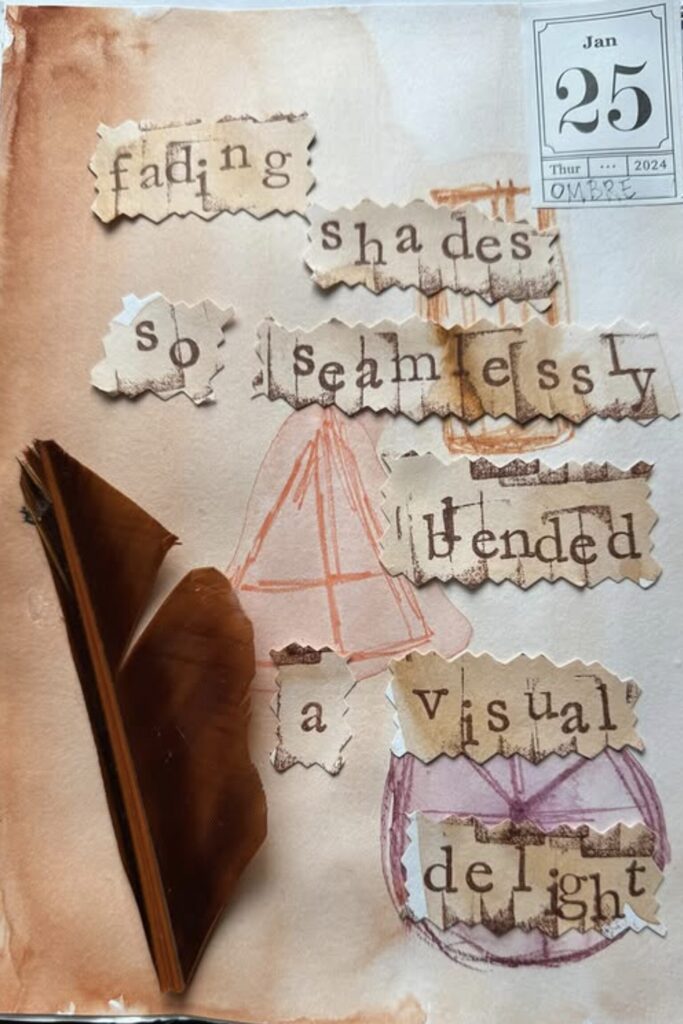 Jan
25
Thur ... 2024
OMBRE
fading
shades
so seamlessly
blended
a visual
delight